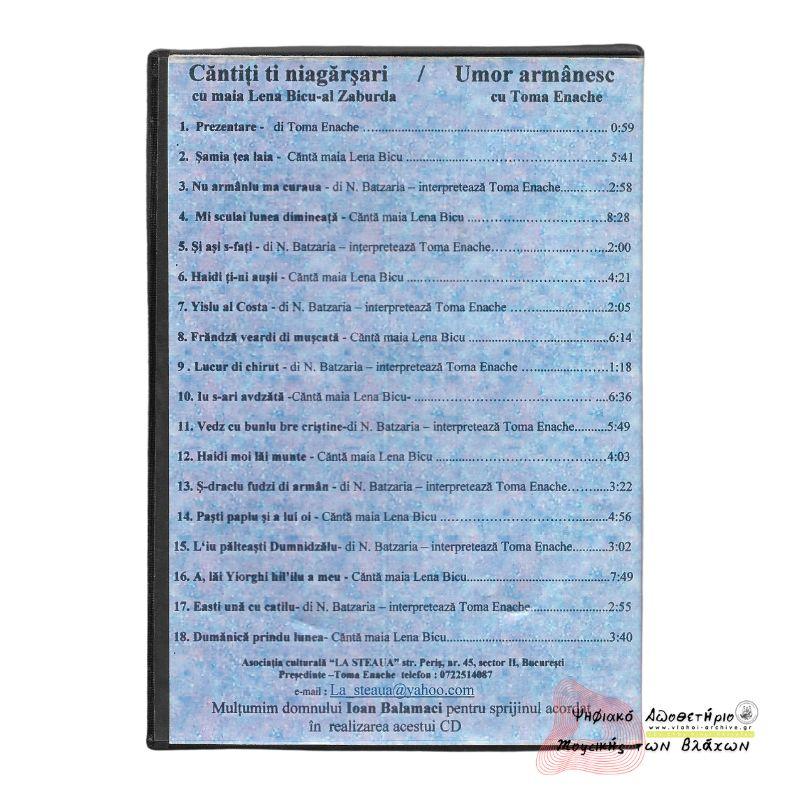 Căntiţi ti niagărşari / Umor armânesc
cu maia Lena Bicu-al Zaburda cu Toma Enache
1. Prezentare - di Toma Enache ........................................................ 0:59
2. Şamia ţea laia - Căntă maia Lena Bicu ................................................ 5:41
3. Nu armânlu ma curaua - di N. Batzaria – interpretează Toma Enache............2:58
4. Mi sculai lunea dimineaţă - Căntă maia Lena Bicu ................................8:28
5. Şi aşi s-faţi - di N. Batzaria – interpretează Toma Enache.........................2:00
6. Haidi ţi-ni auşii - Căntă maia Lena Bicu ............................................4:21
7. Yislu al Costa - di N. Batzaria – interpretează Toma Enache .....................2:05
8. Frăndză veardi di muşcată - Căntă maia Lena Bicu ................................6:14
9 . Lucur di chirut - di N. Batzaria – interpretează Toma Enache ....................1:18
10. Iu s-ari avdzătă -Căntă maia Lena Bicu- ..........................................6:36
11. Vedz cu bunlu bre criştine-di N. Batzaria – interpretează Toma Enache..........5:49
12. Haidi moi lăi munte - Căntă maia Lena Bicu .......................................4:03
13. Ş-draclu fudzi di armân - di N. Batzaria – interpretează Toma Enache...........3:22
14. Paşti paplu şi a lui oi - Căntă maia Lena Bicu .....................................4:56
15. L‘iu pălteaşti Dumnidzălu- di N. Batzaria – interpretează Toma Enache...........3:02
16. A, lăi Yiorghi hil’ilu a meu - Căntă maia Lena Bicu................................7:49
17. Easti ună cu catilu- di N. Batzaria – interpretează Toma Enache........................2:55
18. Dumănică prindu lunea- Căntă maia Lena Bicu.......................................3:40
Asociaţia culturală “LA STEAUA” str. Periş, nr. 45, sector II, Bucureşti
Preşedinte –Toma Enache telefon : 0722514087
e-mail : La_steaua@yahoo.com
Mulţumim domnului Ioan Balamaci pentru sprijinul acordat
în realizarea acestui CD
Ψηφιακό Αποθετήριο
www.vlahoi-archive.gr
Μουσικής των Βλάχων